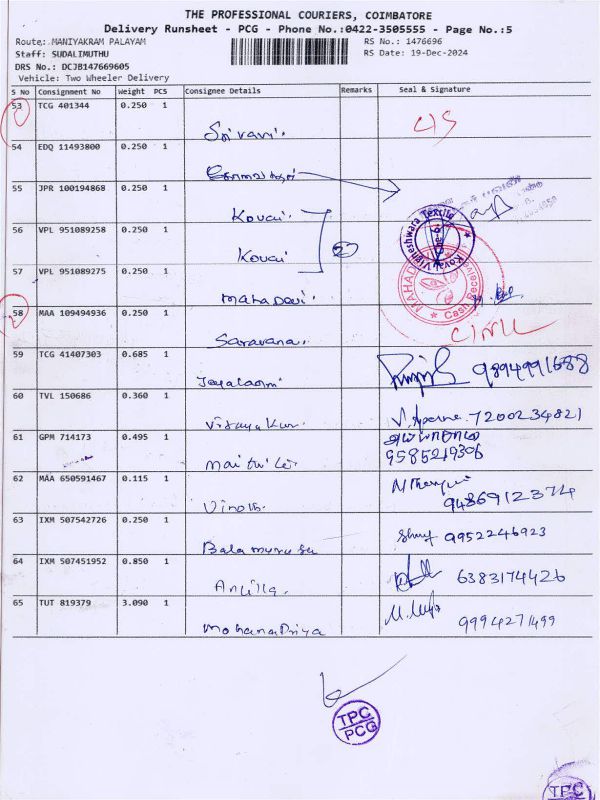 THE PROFESSIONAL COURIERS, COIMBATORE
Delivery Runsheet - PCG - Phone No.:0422-3505555 - Page No.:5
Route: MANIYAKRAM PALAYAM
RS No.: 1476696
Staff: SUDALIMUTHU
RS Date: 19-Dec-2024
DRS No.: DCJB147669605
Vehicle: Two Wheeler Delivery
S No Consignment No Weight PCS Consignee Details Remarks Seal & Signature
53 TCG 401344 0.250 1
Srivani.
54 EDQ 11493800 0.250 1
55 JPR 100194868 0.250 1
Kovai.
56 VPL 951089258 0.250 1
Kovai
2
57 VPL 951089275 0.250 1
Mahadevi.
58 MAA 109494936 0.250 1
Saravana.
59 TCG 41407303 0.685 1
9894991688
60 TVL 150686 0.360 1
V. Aparna. 7200234821
61 GPM 714173 0.495 1
9585219306
62 MAA 650591467 0.115 1
Vinoth.
9486912374
63 IXM 507542726 0.250 1
Bala murugu
9952246923
64 IXM 507451952 0.850 1
6383174426
65 TUT 819379 3.090 1
MohanaPriya
9994271499
TPC
PCG
TPC